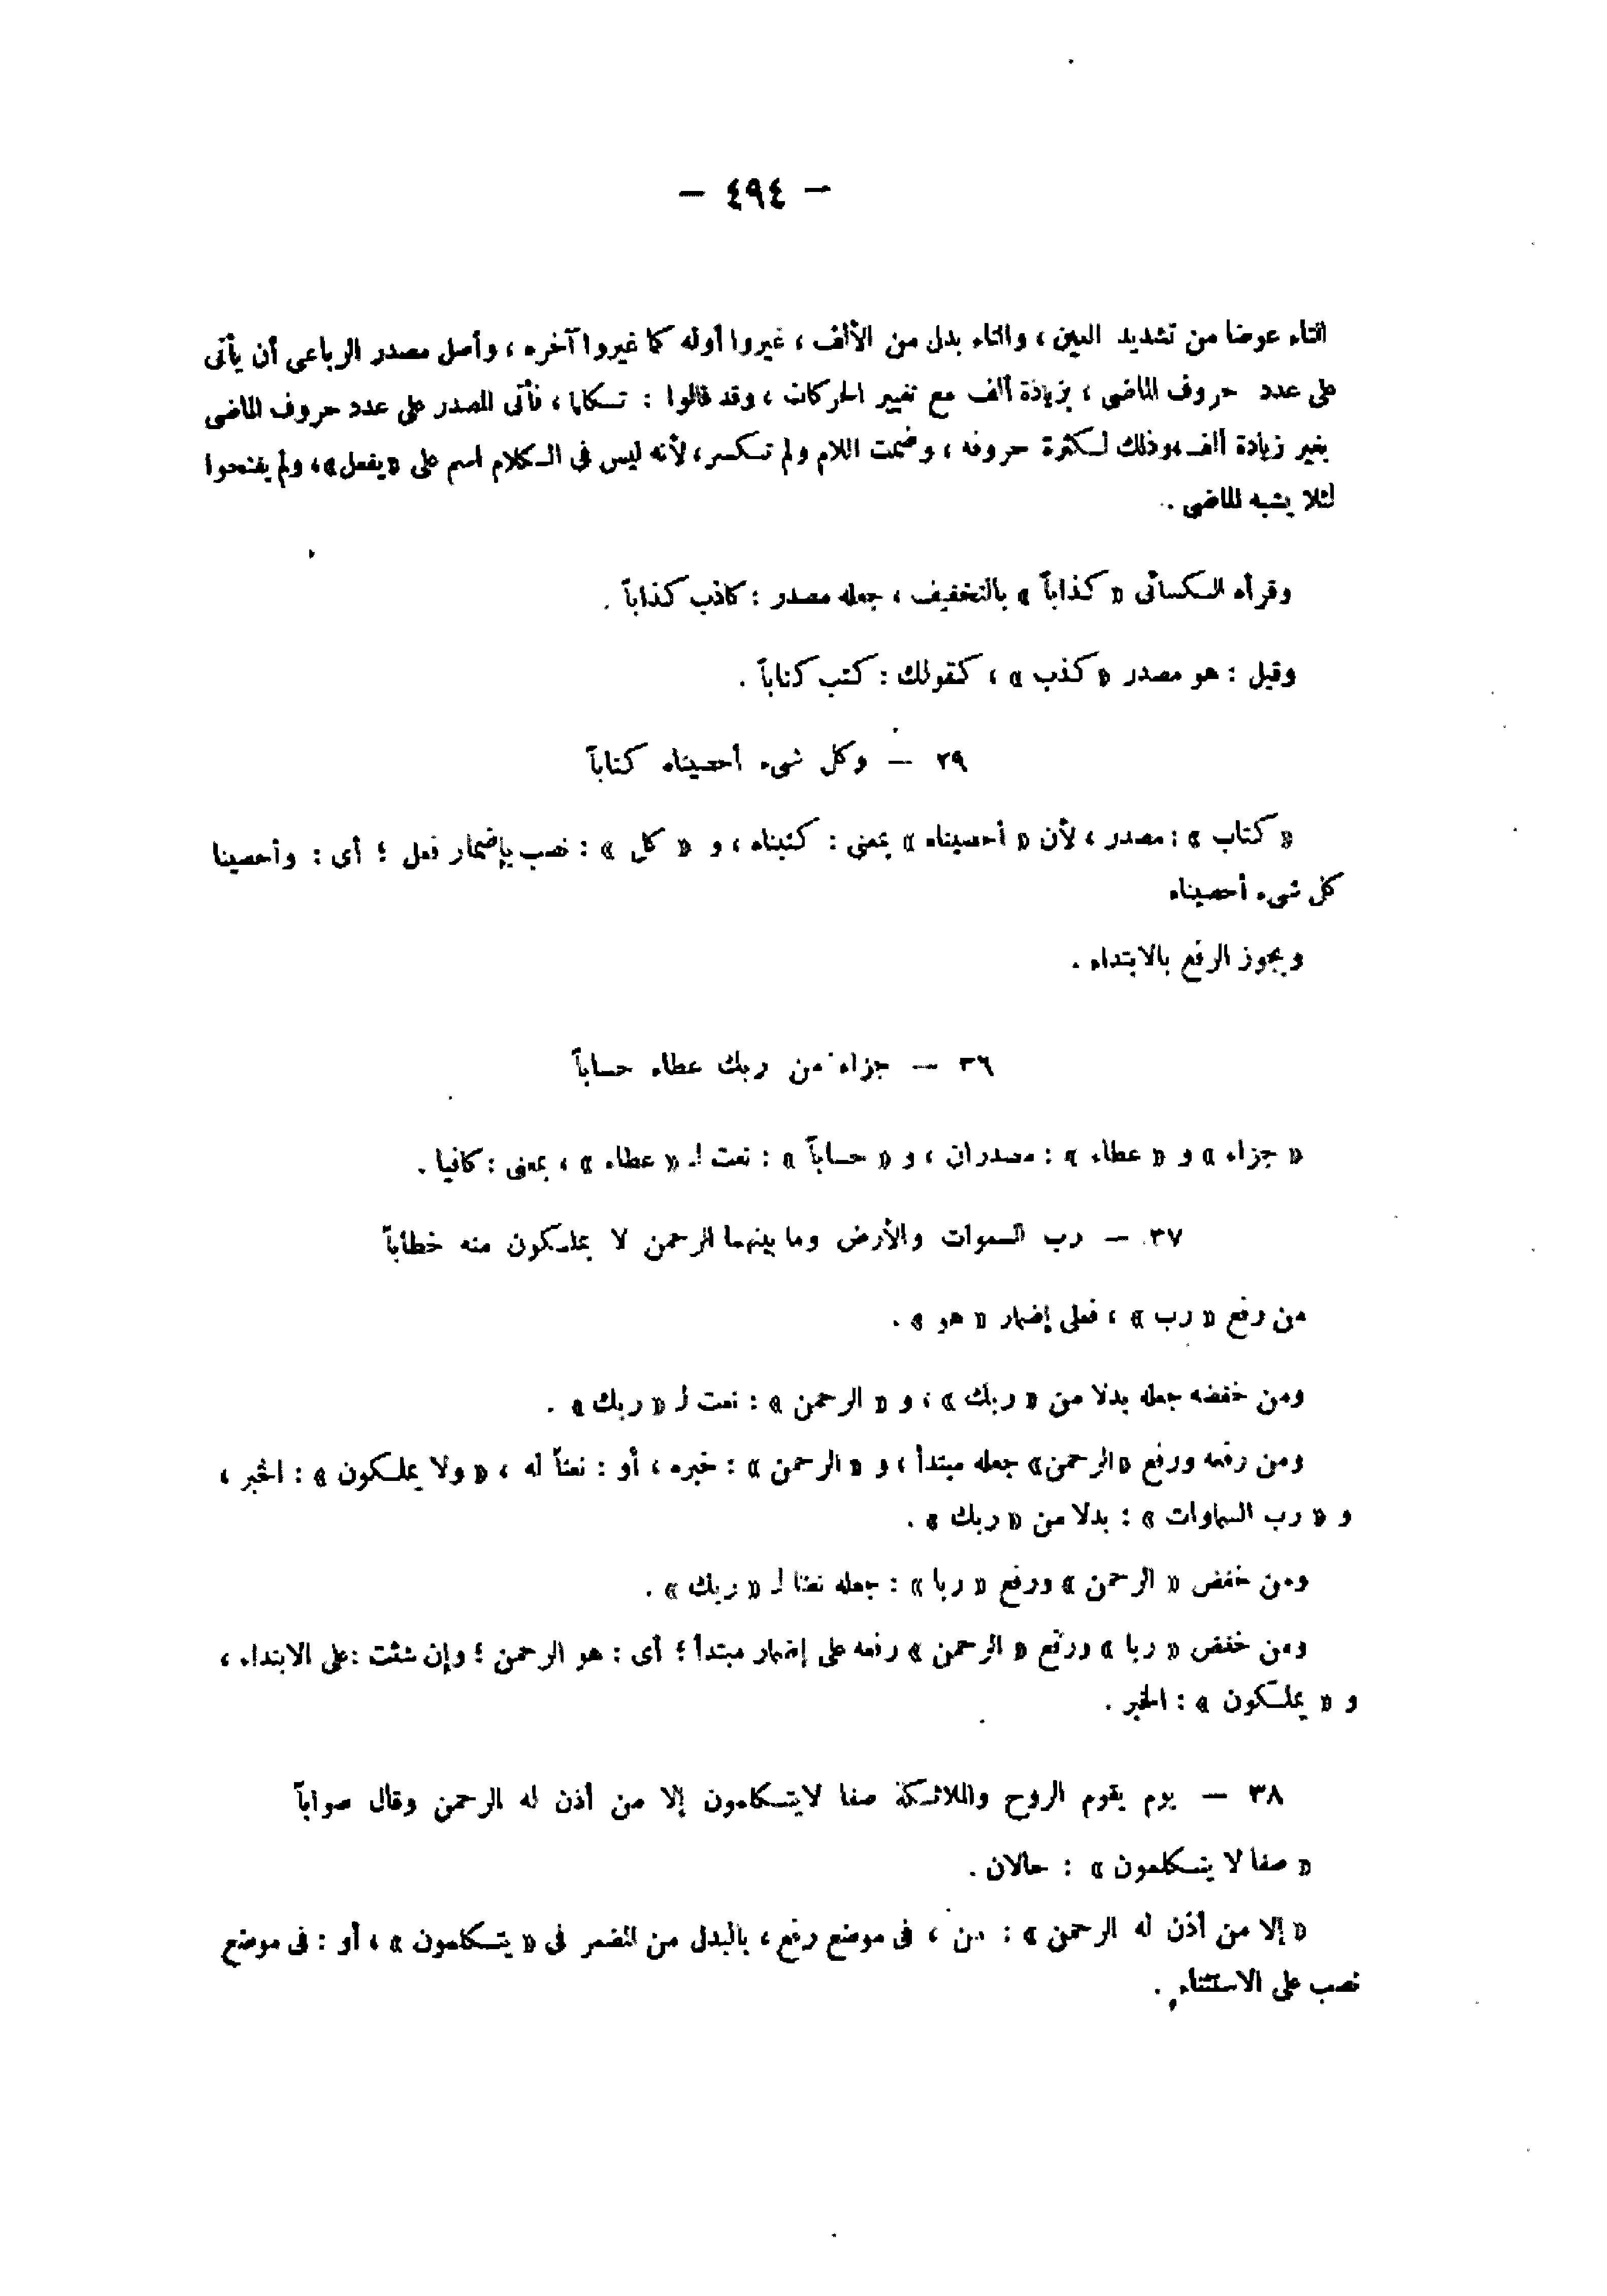 — ٤٩٤ —
التاء عوضا من تشديد العين ، والتاء بدل من الألف ، غيروا أوله كما غيروا آخره ، وأصل مصدر الرباعى أن يأتى
على عدد حروف الماضى ، بزيادة ألف مع تغيير الحركات ، وقد قالوا : تـكلما ، فأتى المصدر على عدد حروف الماضى
بغير زيادة ألف ،وذلك لـكثرة حروفه ، وضمت اللام ولم تـكسر ، لأنه ليس فى الـكلام اسم على «يفعل» ، ولم يفتحوا
لئلا يشبه الماضى .
وقرأه الـكسائى « كذاباً » بالتخفيف ، جعله مصدر : كاذب كذاباً .
وقيل : هو مصدر « كذب » ، كقولك : كتب كتاباً .
٢٩ — وكل شىء أحصيناه كتاباً
« كتاب » : مصدر ، لأن « أحصيناه » بمعنى : كتبناه ، و « كل » : نصب بإضمار فعل ؛ أى : وأحصينا
كل شىء أحصيناه
ويجوز الرفع بالابتداء .
٣٦ — جزاء من ربك عطاء حساباً
« جزاء » و « عطاء » : مصدران ، و « حساباً » : نعت لـ « عطاء » ، بمعنى : كافيا .
٣٧ — رب السموات والأرض وما بينهما الرحمن لا يملـكون منه خطاباً
من رفع « رب » ، فعلى إضمار « هو » .
ومن خفضه جعله بدلا من « ربك » ، و « الرحمن » : نعت لـ « ربك » .
ومن رفعه ورفع «الرحمن» جعله مبتدأ ، و « الرحمن » : خبره ، أو : نعتاً له ، « ولا يملـكون » : الخبر ،
و « رب السماوات » : بدلا من « ربك » .
ومن خفض « الرحمن » ورفع « ربا » : جعله نعتا لـ « ربك » .
ومن خفض « ربا » ورفع « الرحمن » رفعه على إضمار مبتدأ ؛ أى : هو الرحمن ؛ وإن شئت :على الابتداء ،
و « يملـكون » : الخبر .
٣٨ — يوم يقوم الروح والملائـكة صفا لايتـكلمون إلا من أذن له الرحمن وقال صواباً
« صفا لا يتـكلمون » : حالان .
« إلا من أذن له الرحمن » : من ، فى موضع رفع ، بالبدل من المضمر فى « يتـكلمون » ، أو : فى موضع
نصب على الاستثناء .